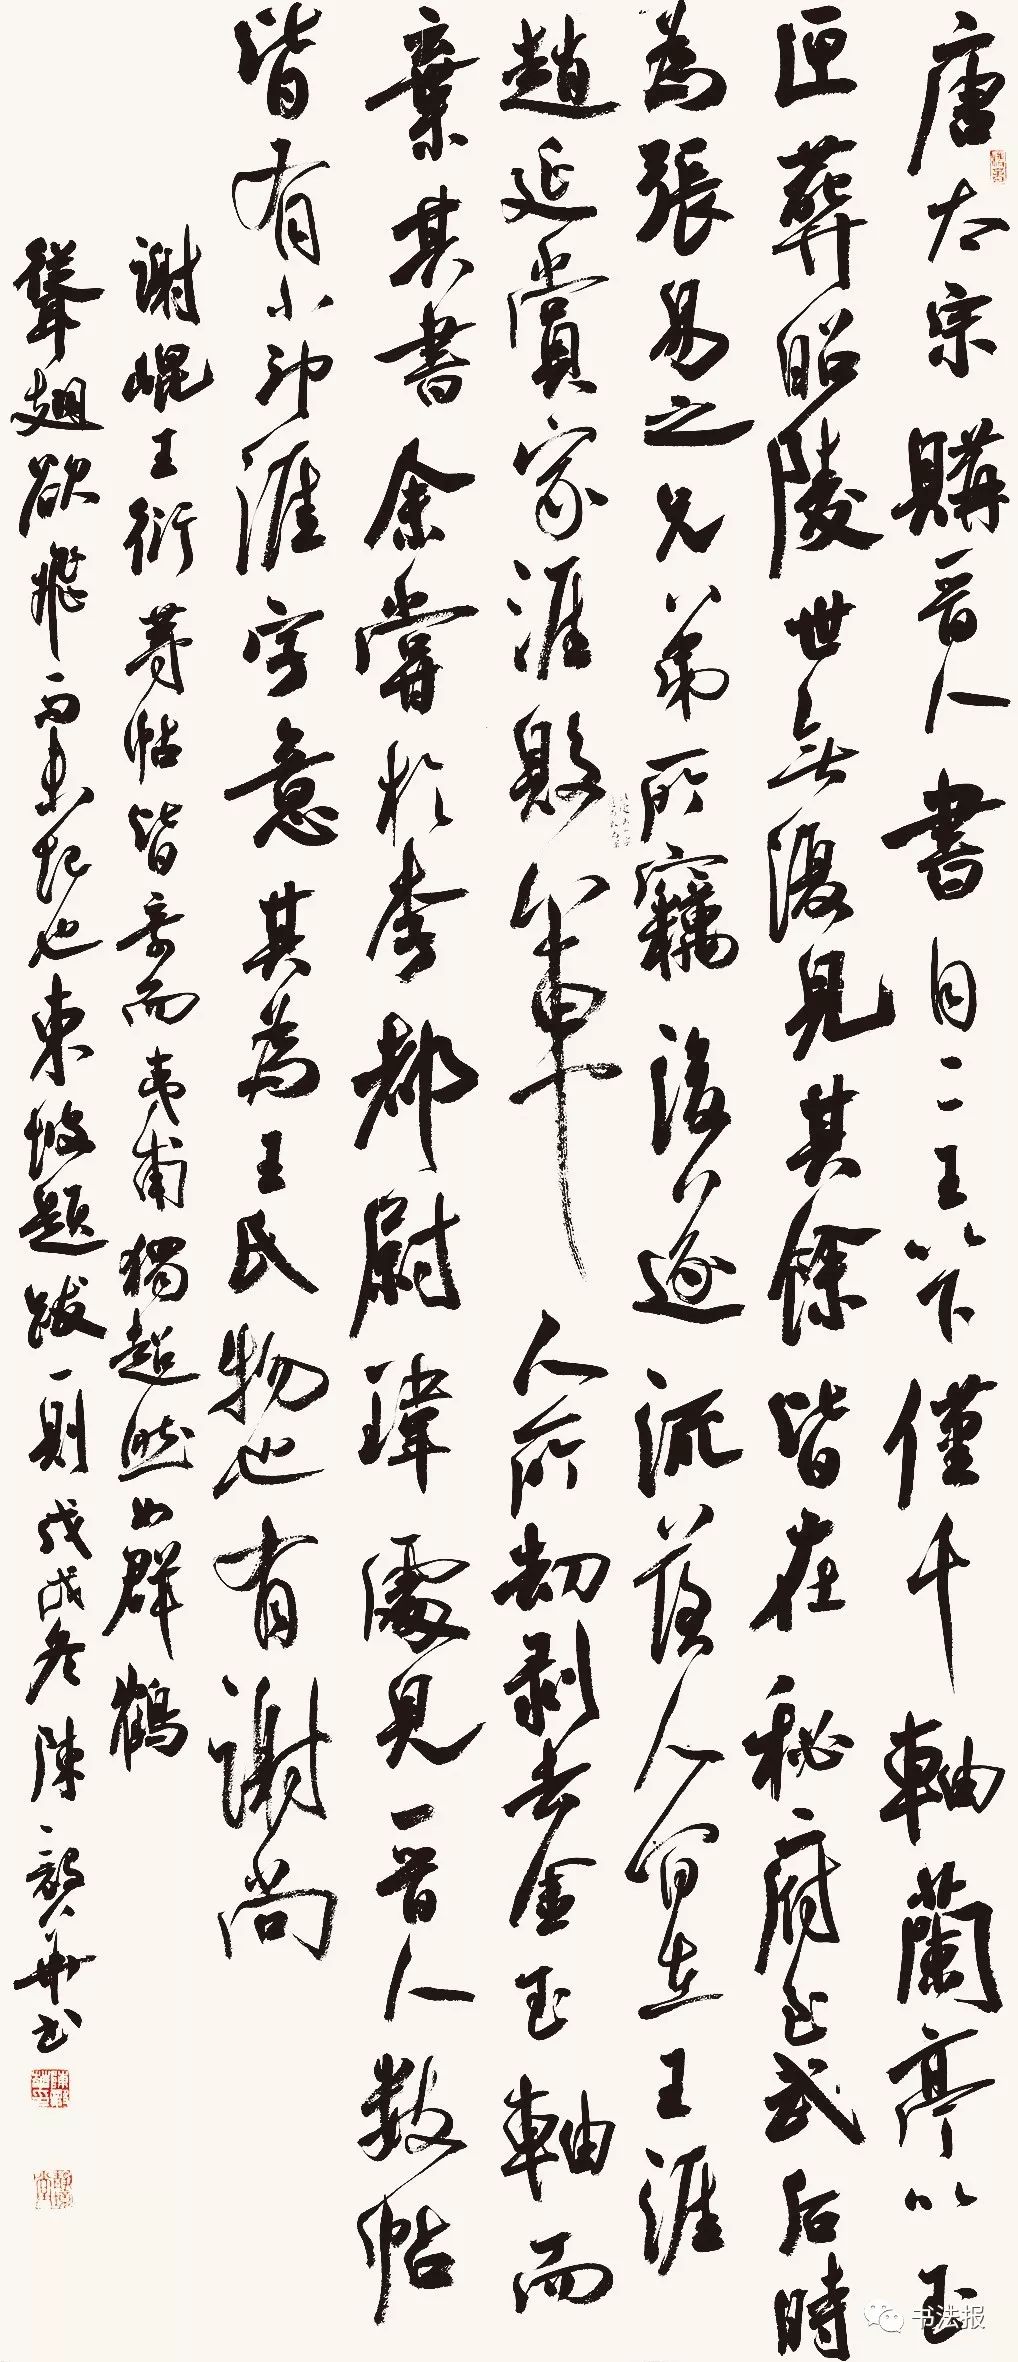 唐太宗購晉人書自二王以下僅千軸蘭亭以玉
匣葬昭陵世無復見其餘皆在秘府至武后時
為張易之兄弟所竊後遂流落人間在王涯
趙延賞家涯敗為軍人所劫剥去金玉軸而
棄其書余嘗於李都尉瑋處見晉人數帖
皆有小印涯字意其為王氏物也有謝尚
謝鯤王衍等帖皆奇而夷甫獨超然如群鶴
聳翅欲飛而未起也東坡題跋一則戊戌冬陳
书法报